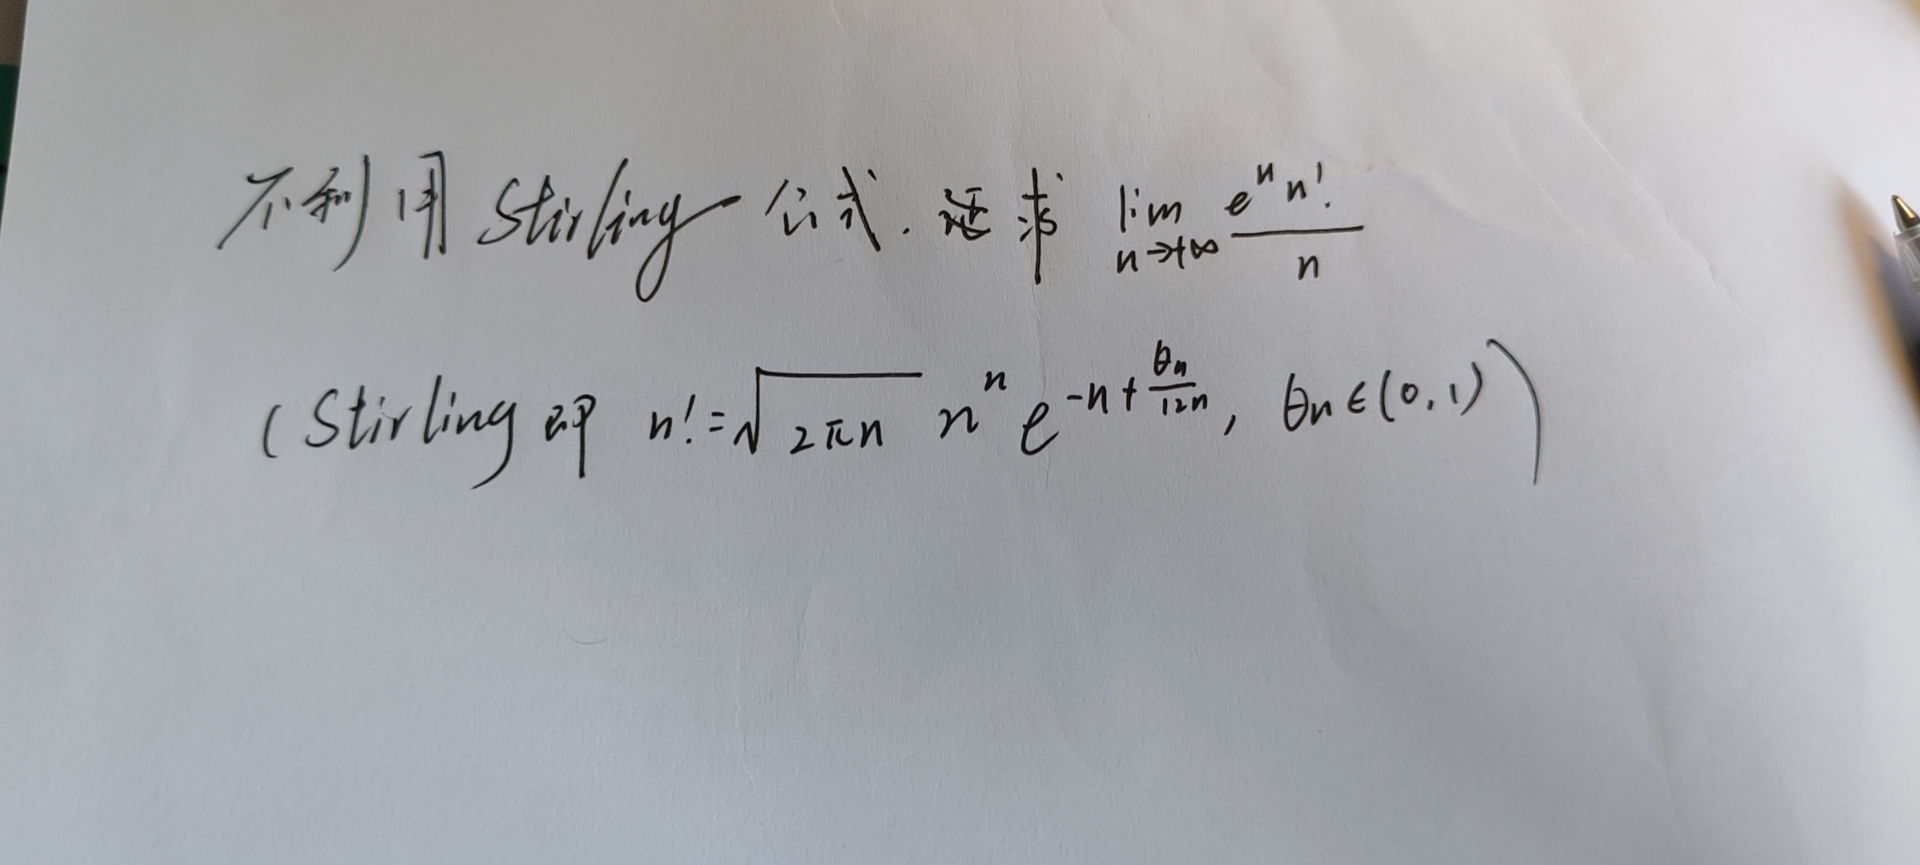 不利用 Stirling 公式. 还求 lim_{n→+∞} \frac{e^n n!}{n}
(Stirling 即 n! = \sqrt{2πn} n^n e^{-n+\frac{θn}{12n}}, θn∈(0,1))